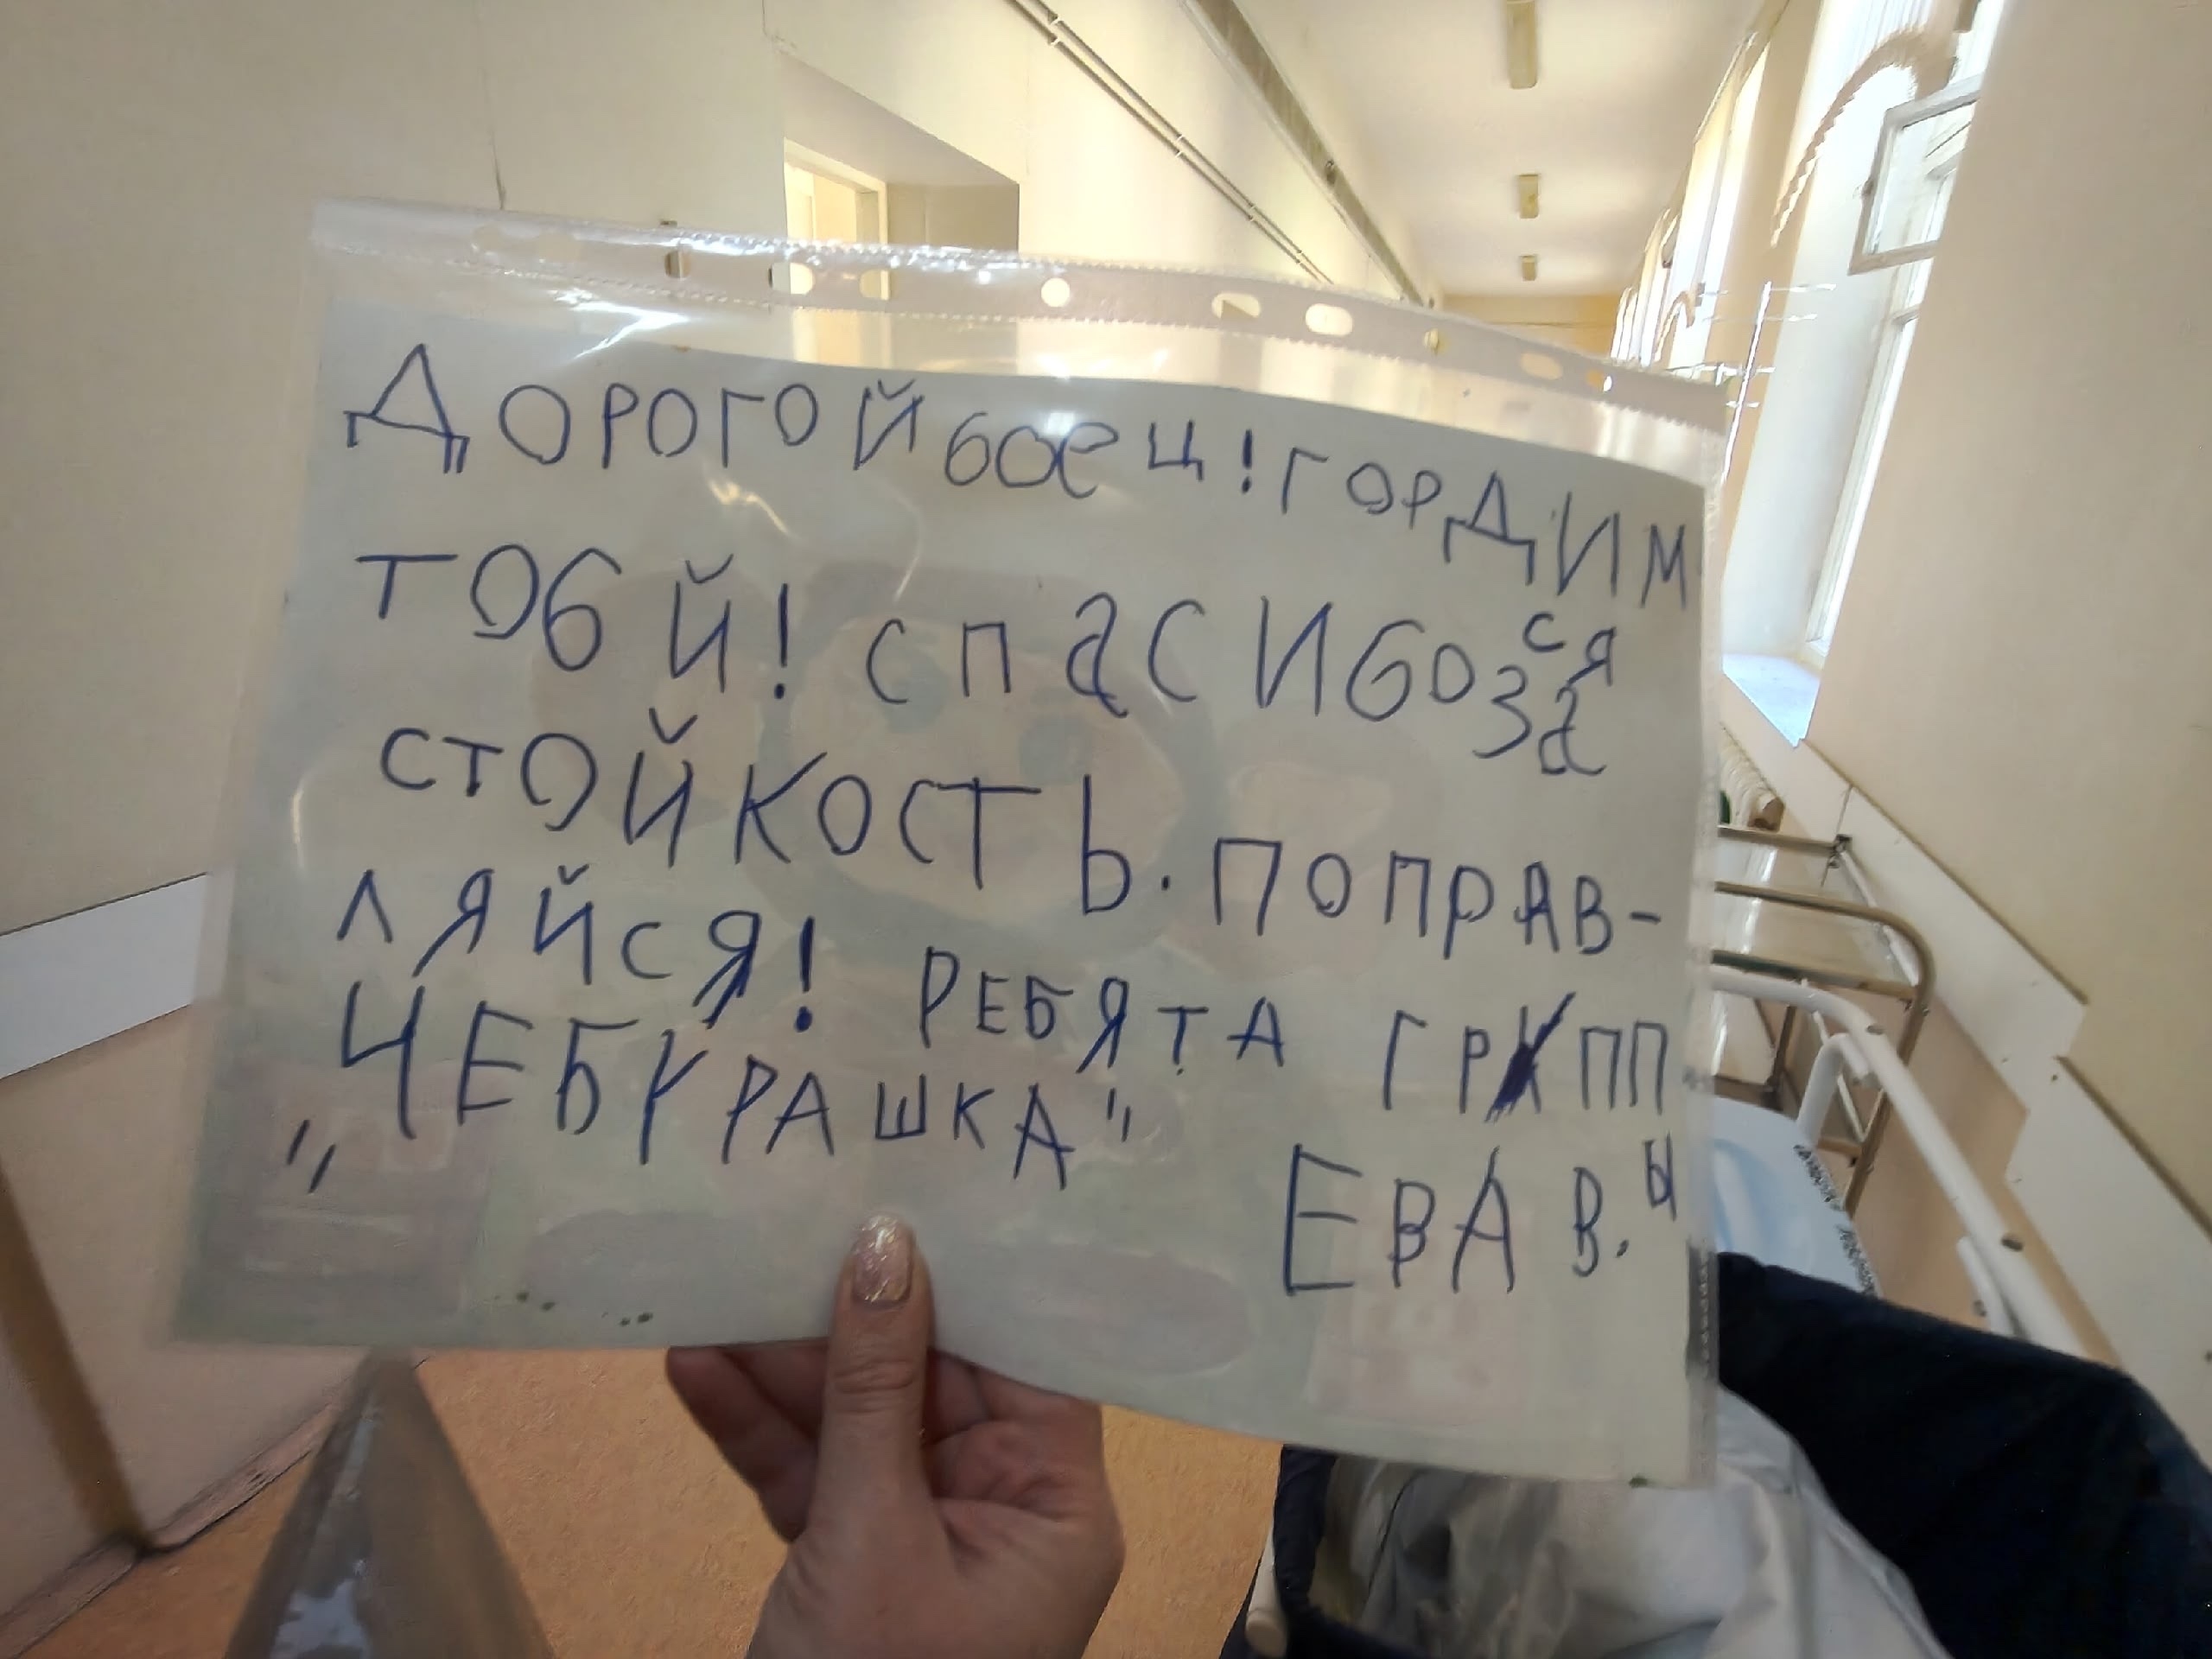 Дорогой боец! гордим
ся
тобой! спасибо за
стойкость. поправ-
ляйся! ребята групп
ы
„Чебурашка"
Ева В.